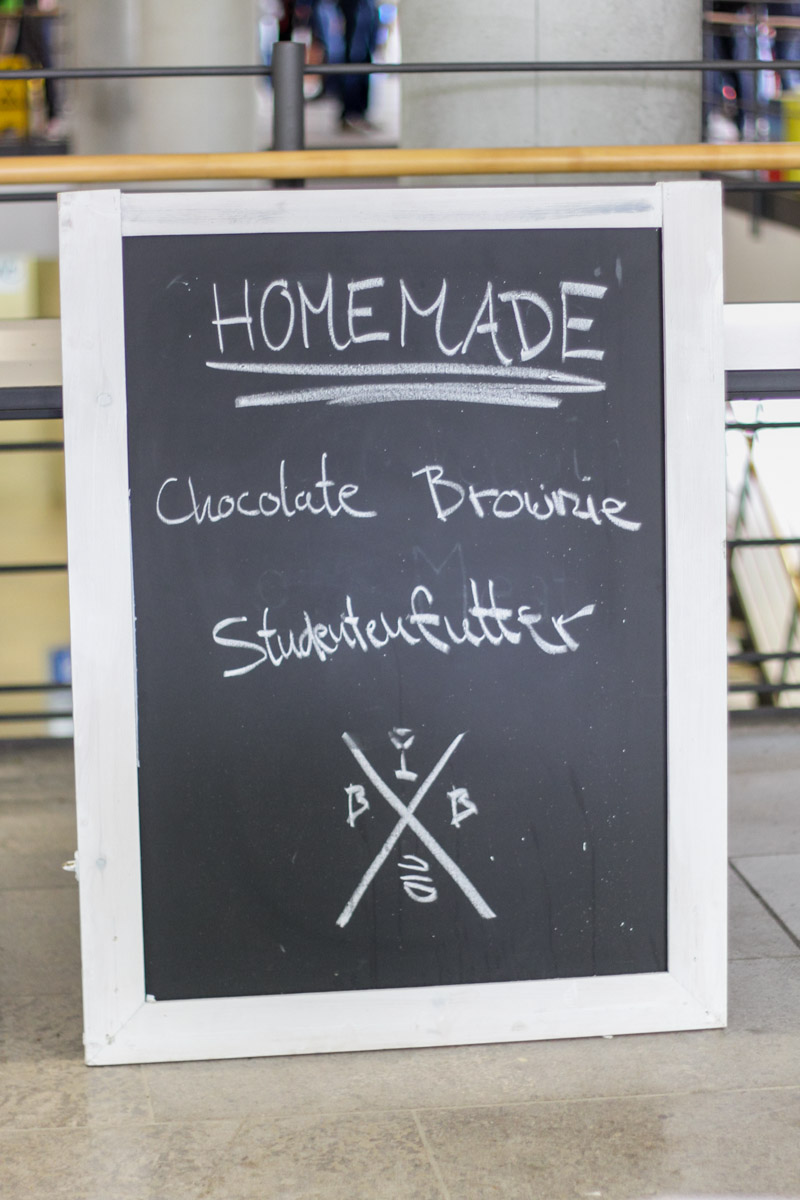 HOMEMADE
Chocolate Brownie
Studentenfutter
B B